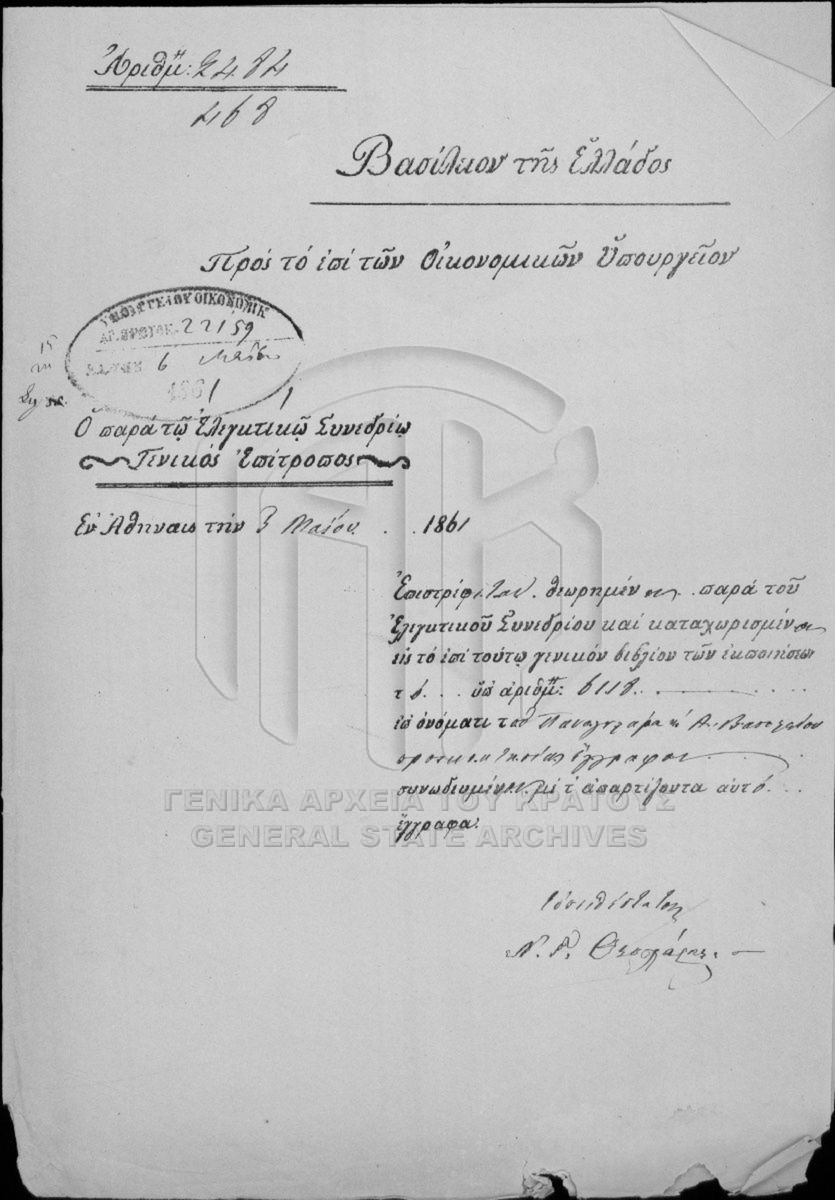 Ἀριθμ: 2484
468
Βασίλειον τῆς Ἑλλάδος
Πρός τό ἐπί τῶν Οἰκονομικῶν Ὑπουργεῖον
ΥΠΟΥΡΓΕΙΟΥ ΟΙΚΟΝΟΜΙΚ
ΑΡ. ΠΡΩΤΟΚ. 22159
6 Μαΐου
1861
Ὁ παρά τῷ Ἐλεγκτικῷ Συνεδρίῳ
Γενικός Ἐπίτροπος
Ἐν Ἀθήναις τήν 3 Μαΐου 1861
Ἐπιστρέφεται θεωρημέν παρά τοῦ
Ἐλεγκτικοῦ Συνεδρίου καί καταχωρισμέν
εἰς τό ἐπί τούτῳ γενικόν βιβλίον τῶν ἐκποιήσεων
τό ὑπ ἀριθμ: 6118
ἐπ ὀνόματι τοῦ
ἔγγραφον
συνωδευμένον μέ τ ἀπαρτίζοντα αὐτό
ἔγγραφα.
ΓΕΝΙΚΑ ΑΡΧΕΙΑ ΤΟΥ ΚΡΑΤΟΥΣ
GENERAL STATE ARCHIVES
Εὐπειθέστατος
Ν. Γ.